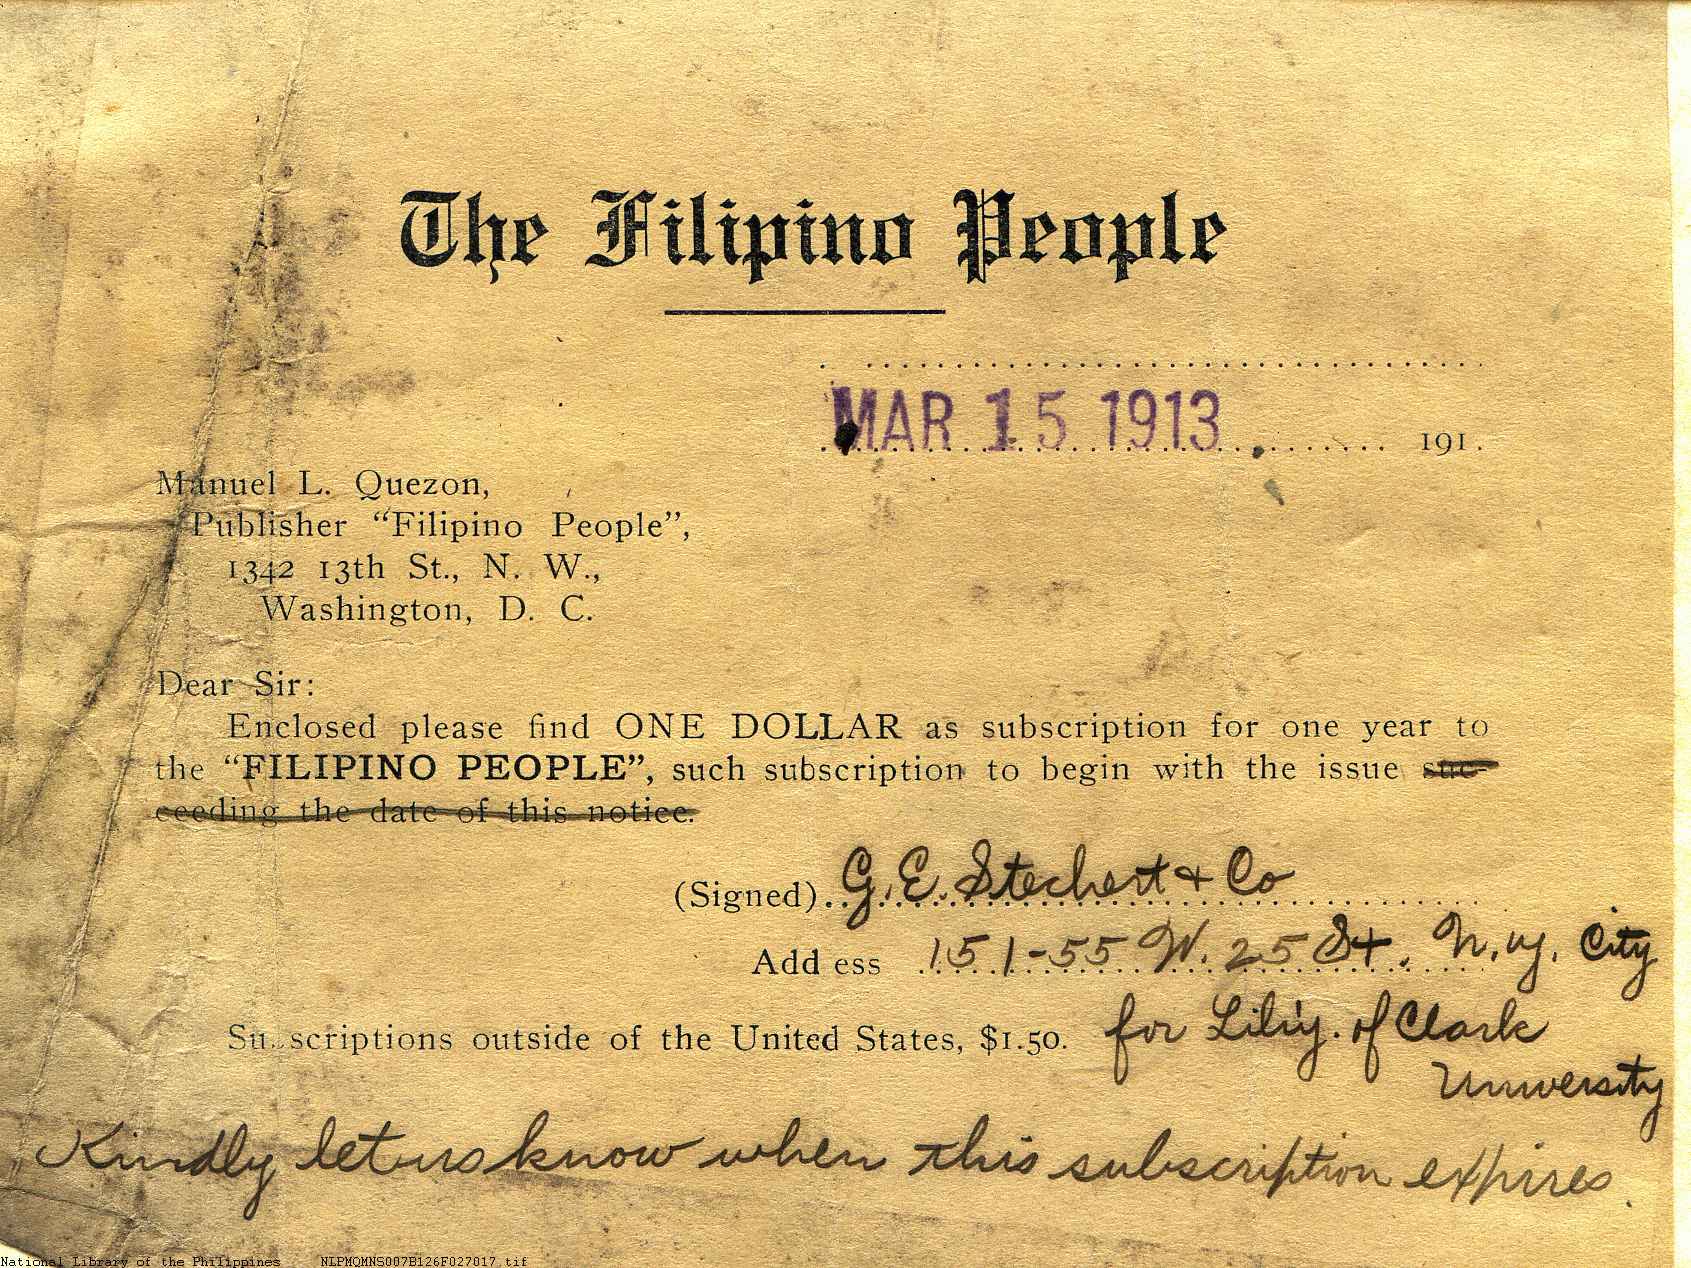 The Filipino People
MAR 15 1913 191.
Manuel L. Quezon,
Publisher “Filipino People”,
1342 13th St., N. W.,
Washington, D. C.
Dear Sir:
Enclosed please find ONE DOLLAR as subscription for one year to
the “FILIPINO PEOPLE”, such subscription to begin with the issue suc-
ceeding the date of this notice.
(Signed) G. E. Stechert & Co
Add ess 151-55 W. 25 St. N. y. City
Su scriptions outside of the United States, $1.50. for Libr'y. of Clark
University
Kindly let us know when this subscription expires.
National Library of the Philippines NLPMQMNS007B126F027017.tif